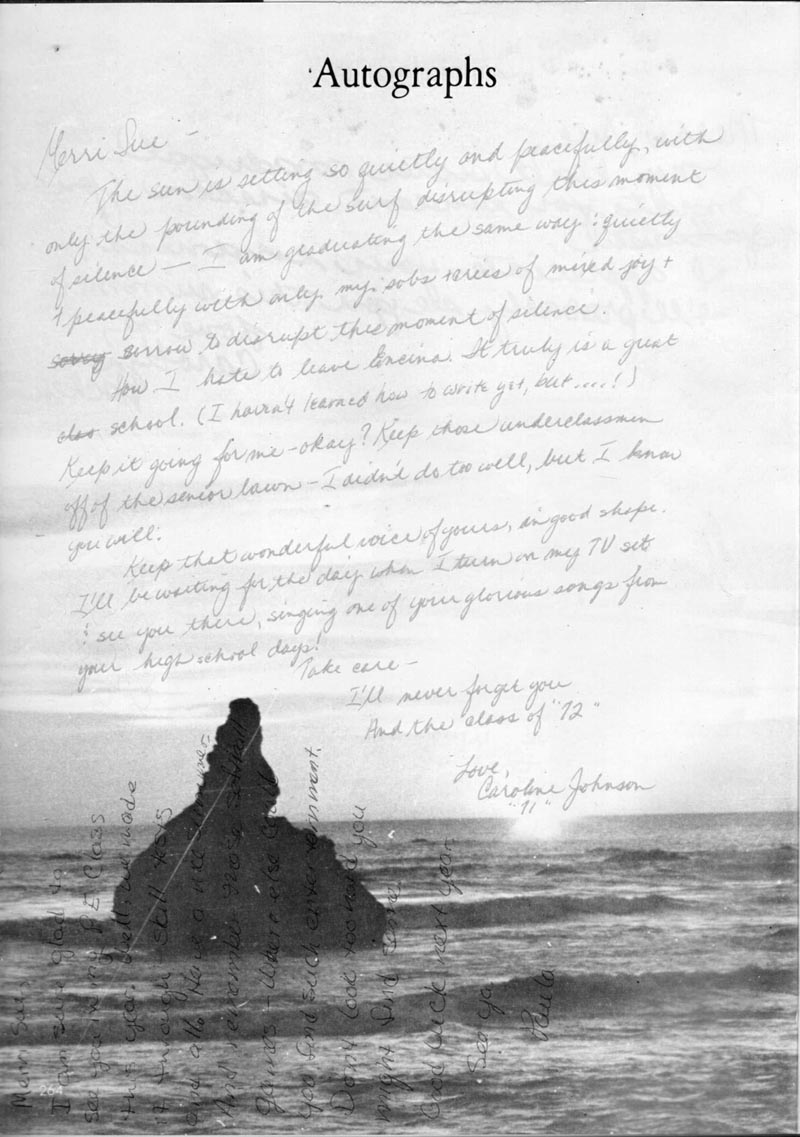 Autographs
Merri Sue –
The sun is setting so quietly and peacefully, with
only the pounding of the surf disrupting this moment
of silence — I am graduating the same way: quietly
+ peacefully with only my sobs + cries of mixed joy +
sorrow to disrupt this moment of silence.
How I hate to leave Encina. It truly is a great
school. (I haven't learned how to write yet, but....!)
Keep it going for me – okay? Keep those underclassmen
off of the senior lawn – I didn't do too well, but I know
you will.
Keep that wonderful voice of yours, in good shape.
I'll be waiting for the day when I turn on my TV set
& see you there, singing one of your glorious songs from
your high school days!
Take care –
I'll never forget you
And the class of "72"
Love,
Caroline Johnson
"71"
Merri Sue,
I am sure glad to
see you in my PE Class
this year. Well, we made
it through skill tests
and all. Have a nice summer
And remember those softball
games – where else could
you find such enviornment.
Don't look too hard you
might find some.
Good luck next year.
See ya
Paula
264